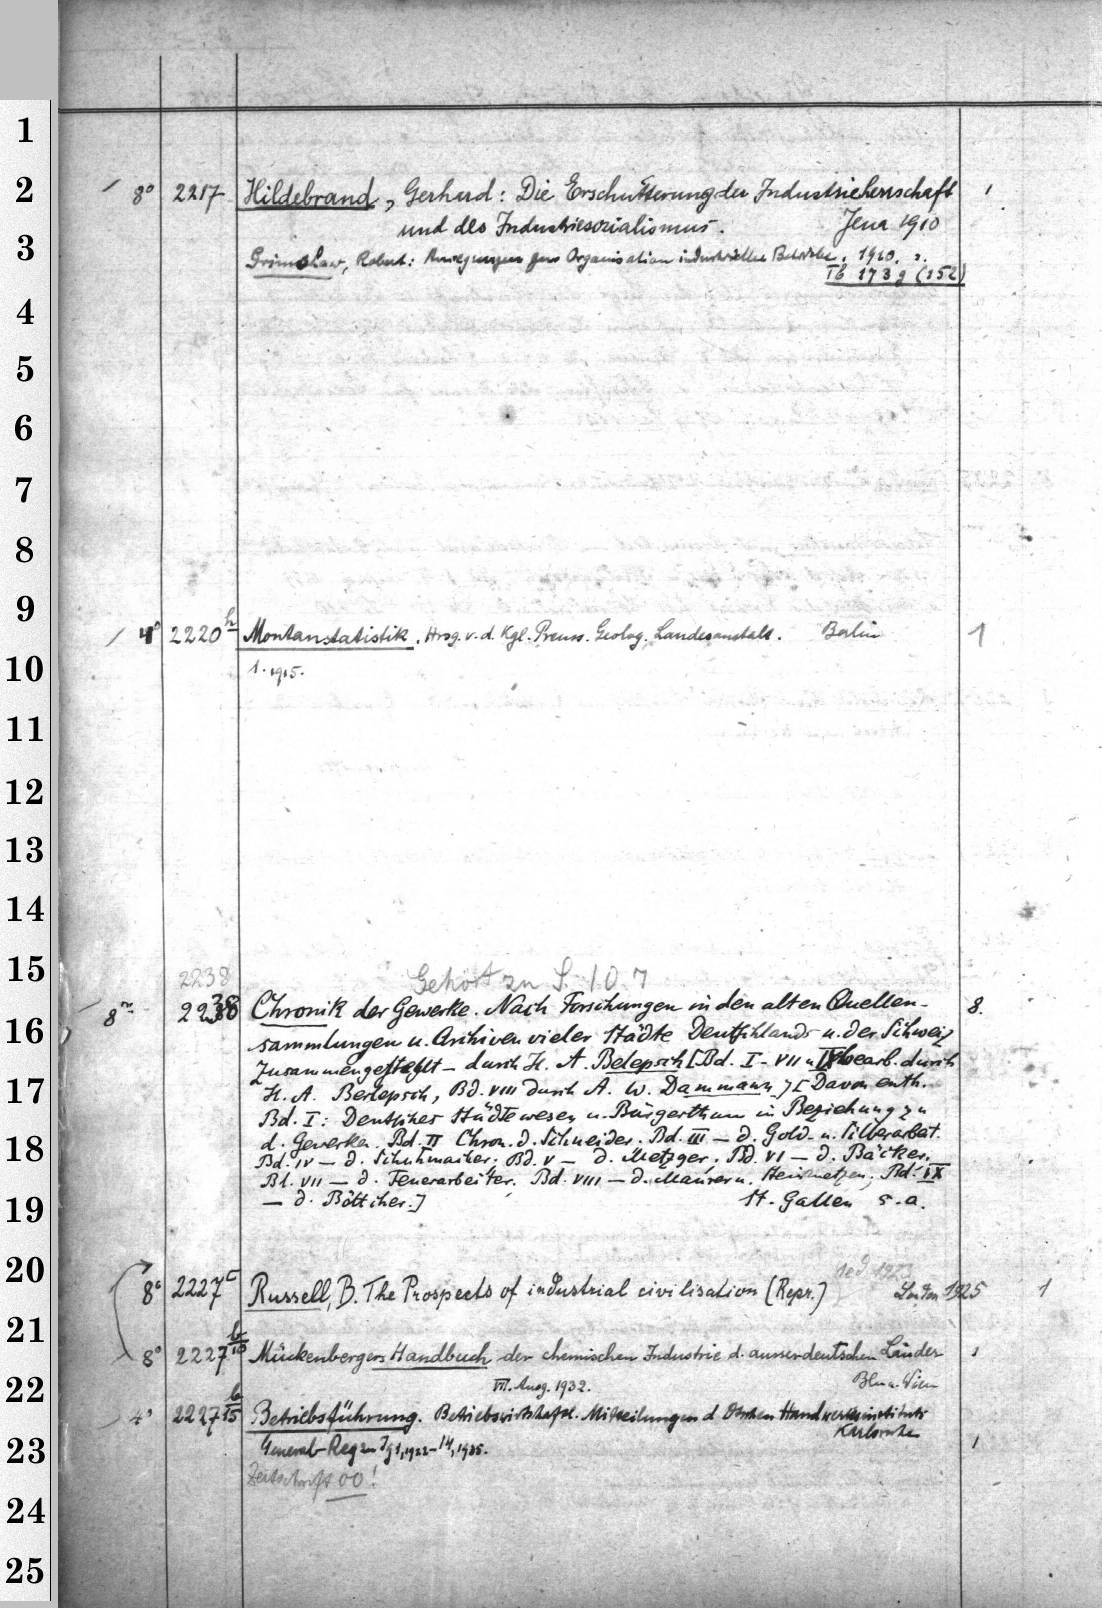 1
2
8° 2217 Hildebrand, Gerhard: Die Erschütterung der Industrieherrschaft 1
und des Industriesozialismus. Jena 1910
3
Grimshaw, Robert: Anregungen zur Organisation industrieller Betriebe. 1920.
Tb 173 g (252)
4
5
6
7
8
9
4° 2220 h Montanstatistik. Hrsg. v. d. Kgl. Preuss. Geolog. Landesanstalt. Berlin 1
10
1. 1915.
11
12
13
14
15
2238 Gehört zu S. 107
8° 2238 Chronik der Gewerke. Nach Forschungen in den alten Quellen- 8.
16
sammlungen u. Archiven vieler Städte Deutschlands u. der Schweiz
zusammengestellt – durch H. A. Belepsch [Bd. I-VII u IX bearb. durch
17
H. A. Berlepsch, Bd. VIII durch A. W. Dammann] [Davon enth.
Bd. I: Deutsches Städtewesen u. Bürgerthum in Beziehung zu
18
d. Gewerken. Bd. II Chron. d. Schneider. Bd. III – d. Gold- u. Silberarbat.
Bd. IV – d. Schuhmacher. Bd. V – d. Metzger. Bd. VI – d. Bäcker.
Bd. VII – d. Feuerarbeiter. Bd. VIII – d. Maurer u. Steinmetzen. Bd. IX
19
– d. Böttcher.] St. Gallen s. a.
20
8° 2227 c Russell, B. The Prospects of industrial civilisation (Repr.) London 1925 1
21
8° 2227 b/10 Mückenbergers Handbuch der chemischen Industrie d. ausserdeutschen Länder 1
22
VII. Ausg. 1932. Bln u. Wien
4° 2227 b/15 Betriebsführung. Betriebswirtschaftl. Mitteilungen d Dtschen Handwerksinstituts
Karlsruhe
23
General-Reg zu Jg 1, 1922-14, 1935. 1
Zeitschrift 00!
24
25